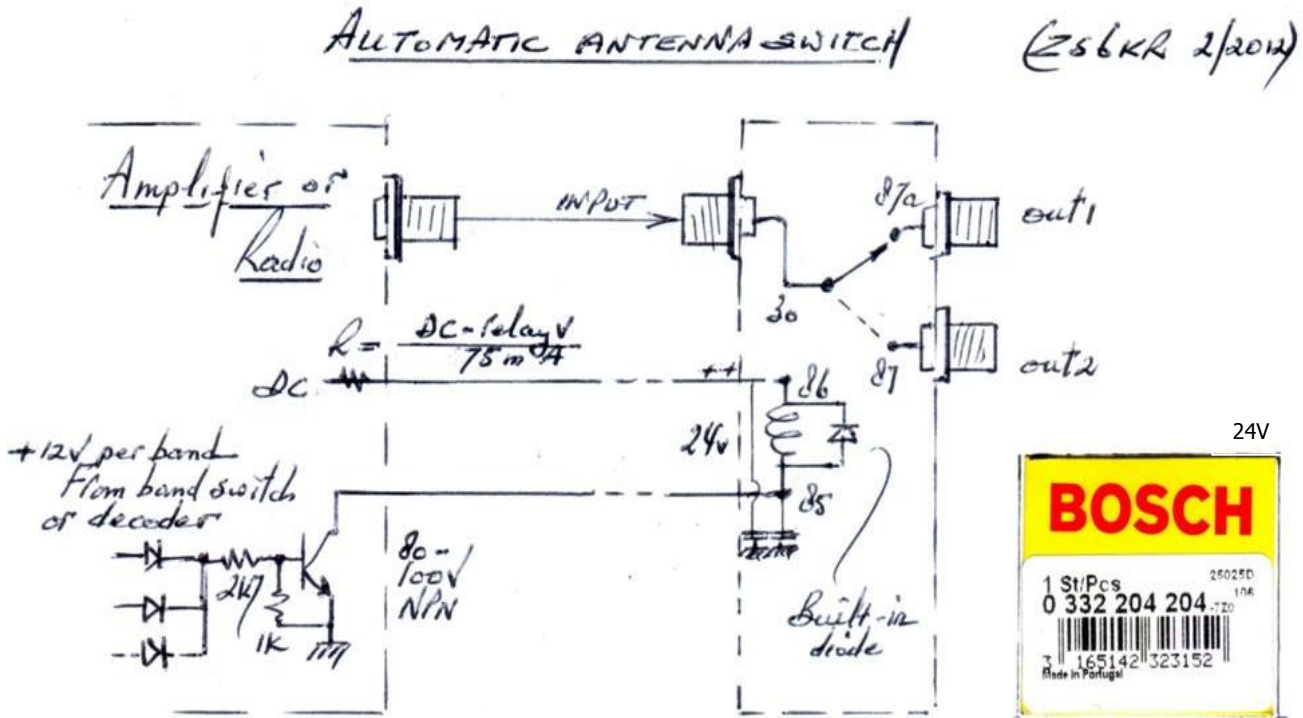 AUTOMATIC ANTENNA SWITCH
(ZS6KR 2/2012)
Amplifier or
Radio
INPUT
87a
out1
30
87
out2
R = DC-relay V
75 mA
DC
++
86
24v
85
+12V per band
From band switch
or decoder
2K7
1K
80-
100V
NPN
Built-in
diode
24V
BOSCH
1 St/Pcs
25025D
106
0 332 204 204 -7Z0
3 165142 323152
Made in Portugal